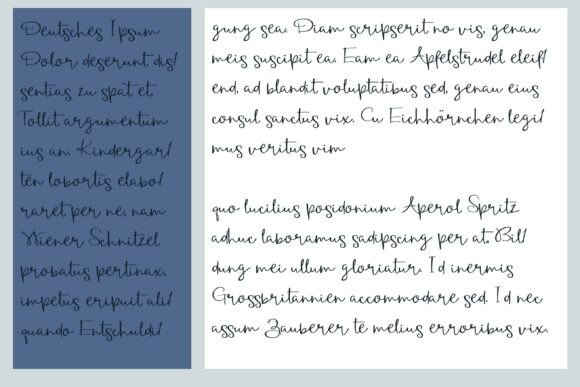 Deutsches Ipsum
Dolor deserunt dis/
sentias zu spät et
Tollit argumentum
ius an. Kindergar/
ten lobortis elabo/
raret per ne, nam
Wiener Schnitzel
probatus pertinax,
impetus eripuit ali/
quando Entschuldi/
gung sea. Diam scripserit no vis, genau
meis suscipit ea. Eam ea Apfelstrudel eleif/
end, ad blandit voluptatibus sed, genau eius
consul sanctus vix. Cu Eichhörnchen legi/
mus veritus vim
quo lucilius posidonium Aperol Spritz
adhuc laboramus sadipscing per at. Bil/
dung mei ullum gloriatur. Id inermis
Grossbritannien accommodare sed. Id nec
assum Zauberer te melius erroribus vix.